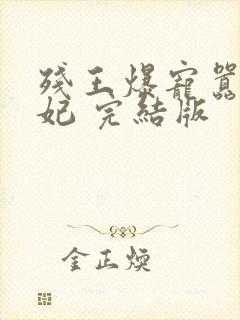 残王爆寵囂
妃 完結版
金正煥